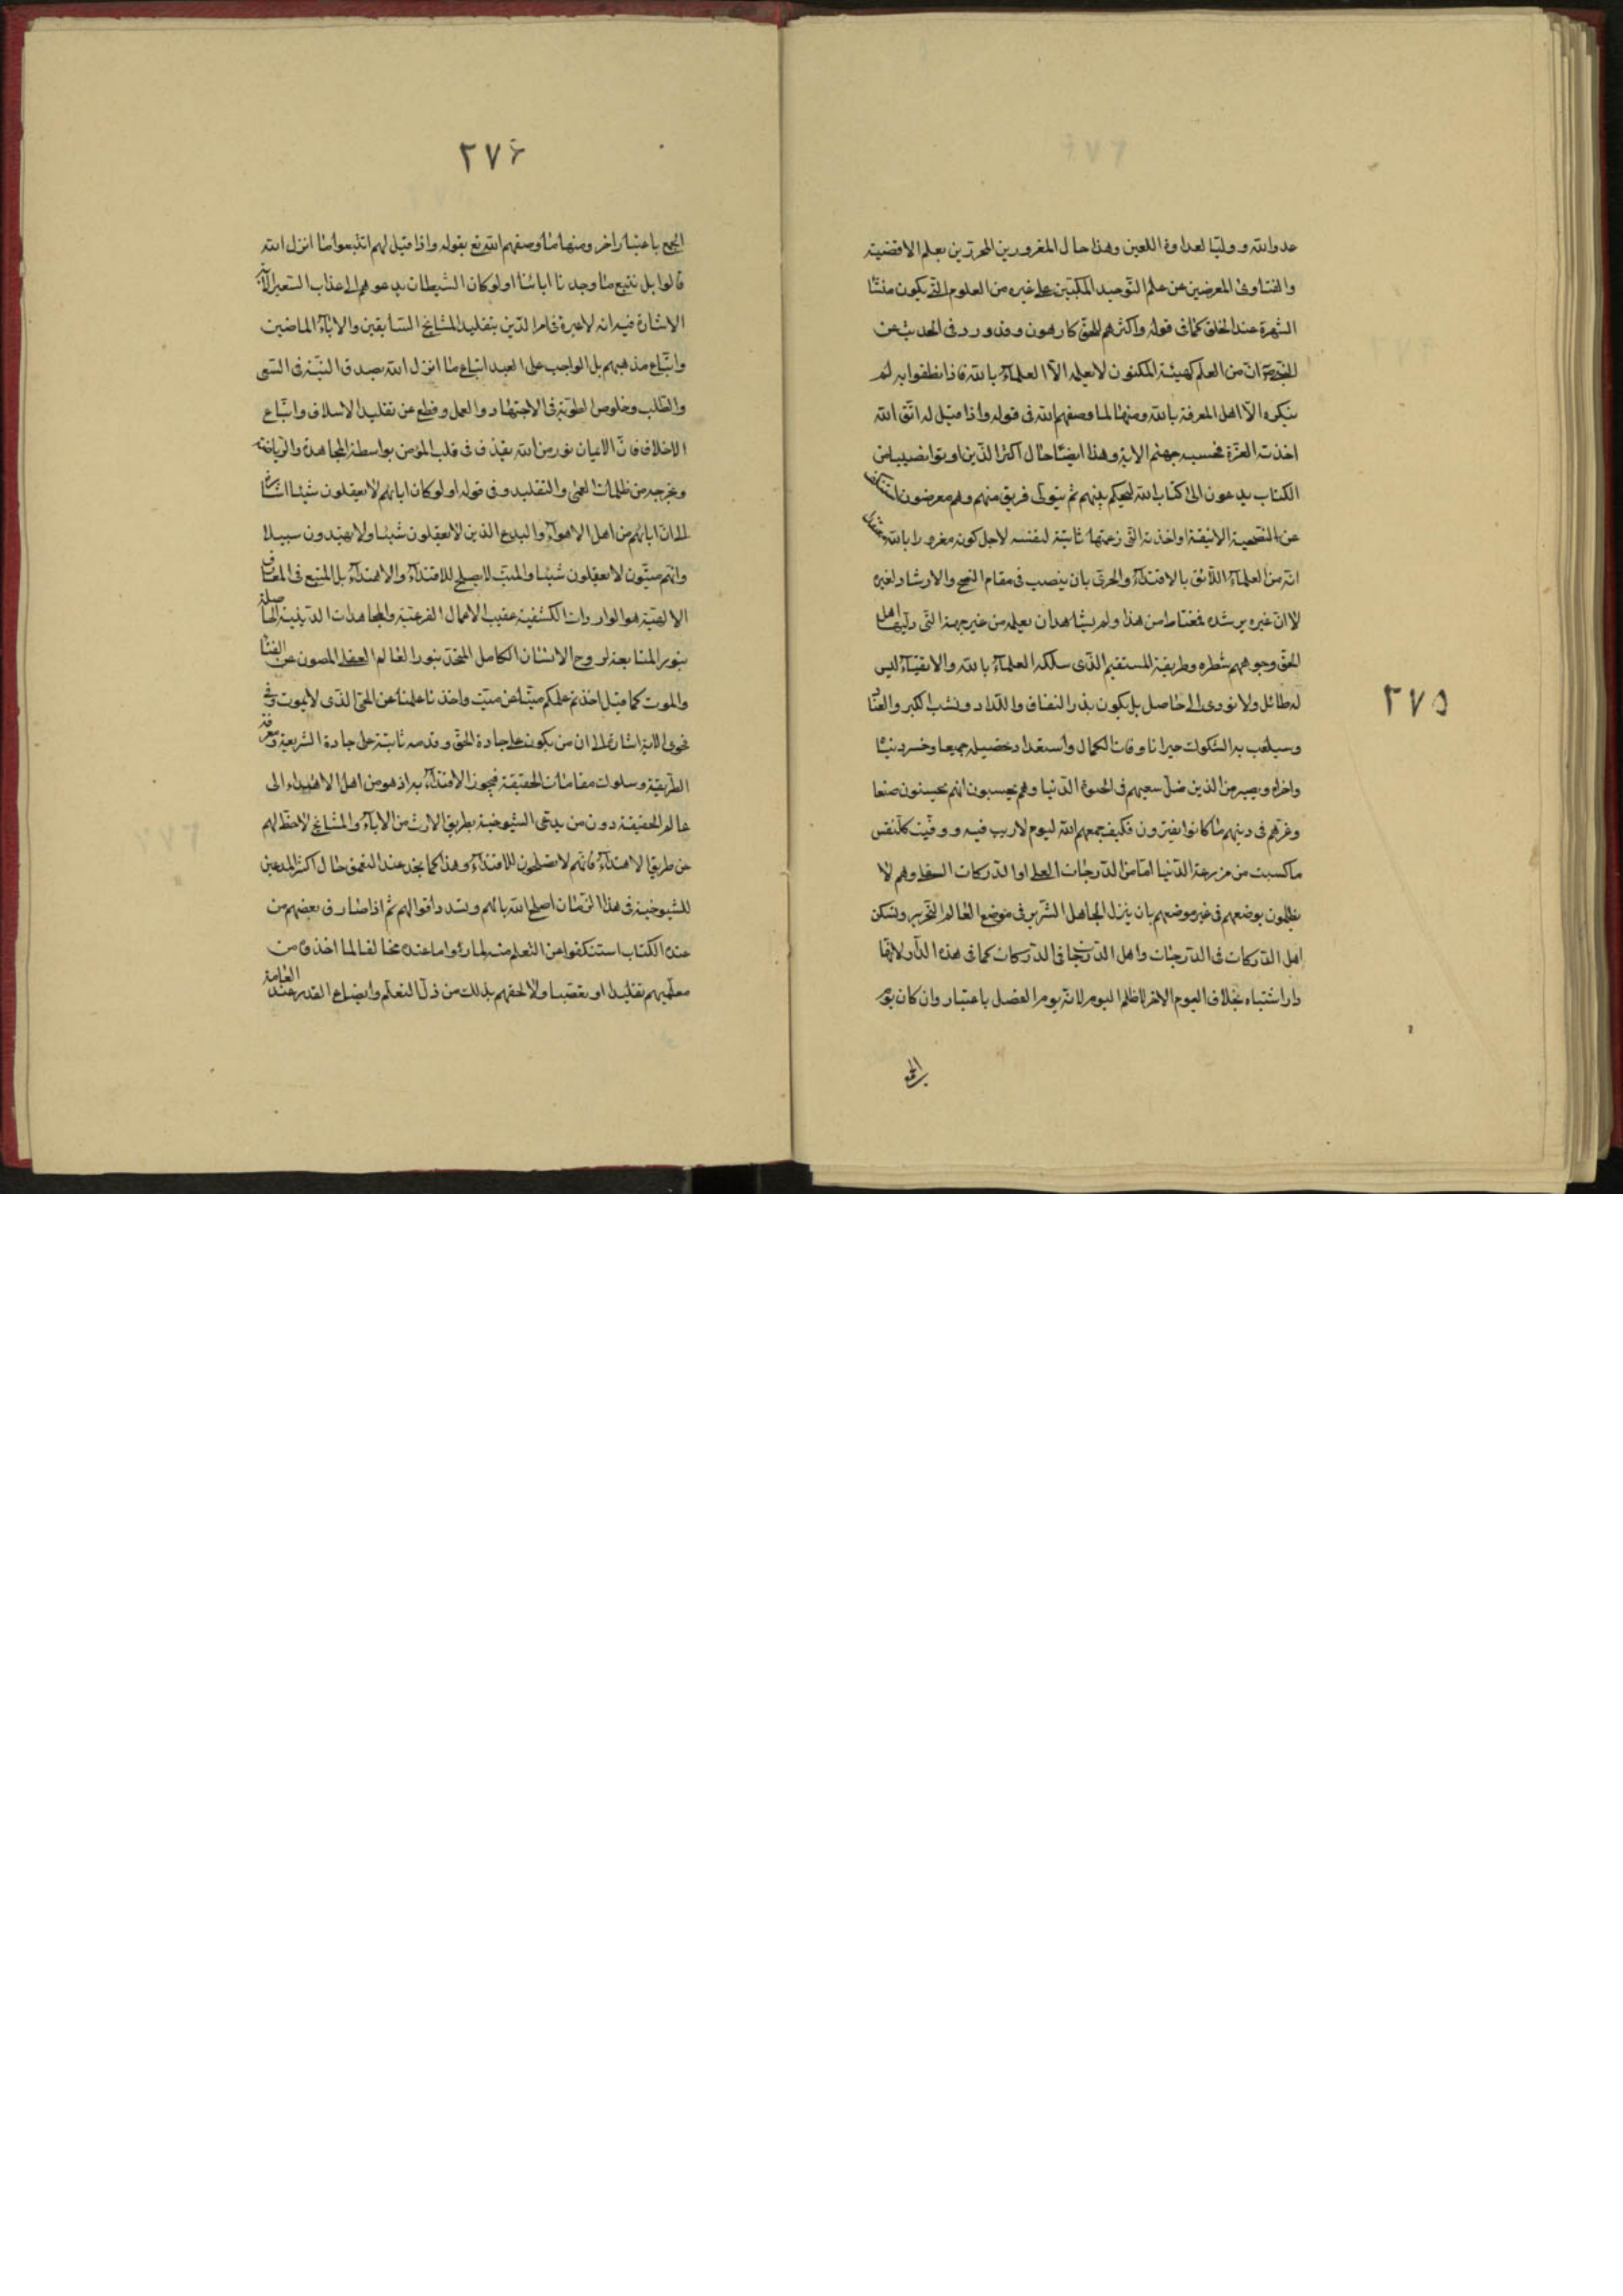 ٢٧٥
عدوالله وولیّا لعداوة اللعین وهذا حال المغرورین المحرزین بعلم الاقضیة
والفتاوی المعرضین عن علم التّوحید المکبّین علی غیره من العلوم الّتی یکون منشا
الشهرة عند الخلق کما فی قوله واکثرهم للحقّ کارهون وقد ورد فی الحدیث عن
انّ من العلم کهیئة المکنون لا یعلمه الّا العلماء بالله فاذا نطقوا به لم
ینکره الّا اهل المعرفة بالله ومنها لما وصفهم الله فی قوله واذا قیل له اتّق الله
اخذته العزّة فحسبه جهنم الایة وهذا ایضًا حال اکثر الّذین اوتوا نصیبا من
الکتاب یدعون الی کتاب الله لیحکم بینهم ثم یتولّی فریق منهم وهم معرضون
عن النصیحة الانیقة واخذته الّتی زعمتها ثابتة لنفسه لاجل کونه مغرورا بالله
انّه من العلماء اللّائق بالاقتداء والحریّ بان ینصب فی مقام النصح والارشاد لغیره
لا انّ غیره یرشده فغتاط من هذا ولم یشاهد ان یعلمه من غیر جهة الّتی ولّیها اهل
الحقّ وجوههم شطره وطریقة المستقیم الّذی سلکه العلماء بالله والاتقیاء لیس
له طائل ولا یؤدی الی حاصل بل یکون بذر النفاق واللداد ونشب الکبر والعنا
وسیلعب به الشکوک حیرانا وفات الکمال واستعداد تحصیله جمیعا وخسر دنیا
واخراه ویصیر من الذین ضلّ سعیهم فی الحیوة الدّنیا وهم یحسبون انهم یحسنون صنعا
وغرّهم فی دینهم ما کانوا یفترون فکیف جمعهم الله لیوم لا ریب فیه ووفّیت کلّ نفس
ما کسبت من مزرعة الدّنیا امّا من الدّرجات العلی او الدّرکات السفلی وهم لا
یظلمون بوضعهم فی غیر موضعهم بان ینزل الجاهل الشّریر فی موضع العالم النّحریر وتسکن
اهل الدّرکات فی الدّرجات واهل الدّرجات فی الدّرکات کما فی هذه الدّار لانّها
دار اشتباه بخلاف الیوم الاخر لا ظلم الیوم لانّه یوم الفصل باعتبار وان کان یوم
الجمع
٢٧٦
الجمع باعتبار اخر ومنها ما وصفهم الله تع بقوله واذا قیل لهم اتّبعوا ما انزل الله
قالوا بل نتّبع ما وجدنا اباءنا اولو کان الشیطان یدعوهم الی عذاب السّعیر الایة
الاشارة فیه انه لا عبرة فی امر الدّین بتقلید المشایخ السّابقین والاباء الماضین
واتّباع مذهبهم بل الواجب علی العبد اتباع ما انزل الله بصدق النیّة فی السّعی
والطّلب وخلوص الطویّة فی الاجتهاد والعمل وقطع عن تقلید الاسلاف واتّباع
الاخلاف فانّ الایمان نور من الله یقذف فی قلب المؤمن بواسطة المجاهدة والرّیاضة
ویخرجه من ظلمات العمی والتقلید وفی قوله اولو کان اباؤهم لا یعقلون شیئا اشارة
الی انّ اباءهم من اهل الاهواء والبدع الذین لا یعقلون شیئا ولا یهتدون سبیلا
وانّهم میّتون لا یعقلون شیئا والمیّت لا یصلح للاقتداء والاهتداء بل المتّبع فی المعارف
الالهیّة هو الواردات الکشفیة عقیب الاعمال الفرعیّة والمجاهدات الدینیة الحاصلة
بنور المتابعة لروح الانسان الکامل المتّحد بنور العالم العقلی المصون عن الفنا
والموت کما قیل اخذتم علمکم میّتا عن میّت واخذنا علمنا عن الحیّ الّذی لا یموت وفی
فحوی الایة اشارة الی ان من یکون علی جادة الحقّ وقدمه ثابتة علی جادة الشریعة ومعرفة
الطّریقة وسلوک مقامات الحقیقة فیجوز الاقتداء به اذ هو من اهل الاهتداء الی
عالم الحقیقة دون من یدعی الشیوخیة بطریق الارث من الاباء والمشایخ لا حظّ لهم
عن طریق الاهتداء فانّهم لا یصلحون للاقتداء وهذا کما نجد عند التعمق حال اکثر المدعین
للشیوخیة فی هذا الزّمان اصلح الله بالهم وسدد اقوالهم ثم اذا صار فی بعضهم من
عنده الکتاب استنکفوا من التعلم منه لما رؤا ما عنده مخالفا لما اخذوه من
معلّمیهم تقلیدا او تعصّبا ولا لحقهم بذلک من ذلّ التعلّم واتضاع القدر عند العامة